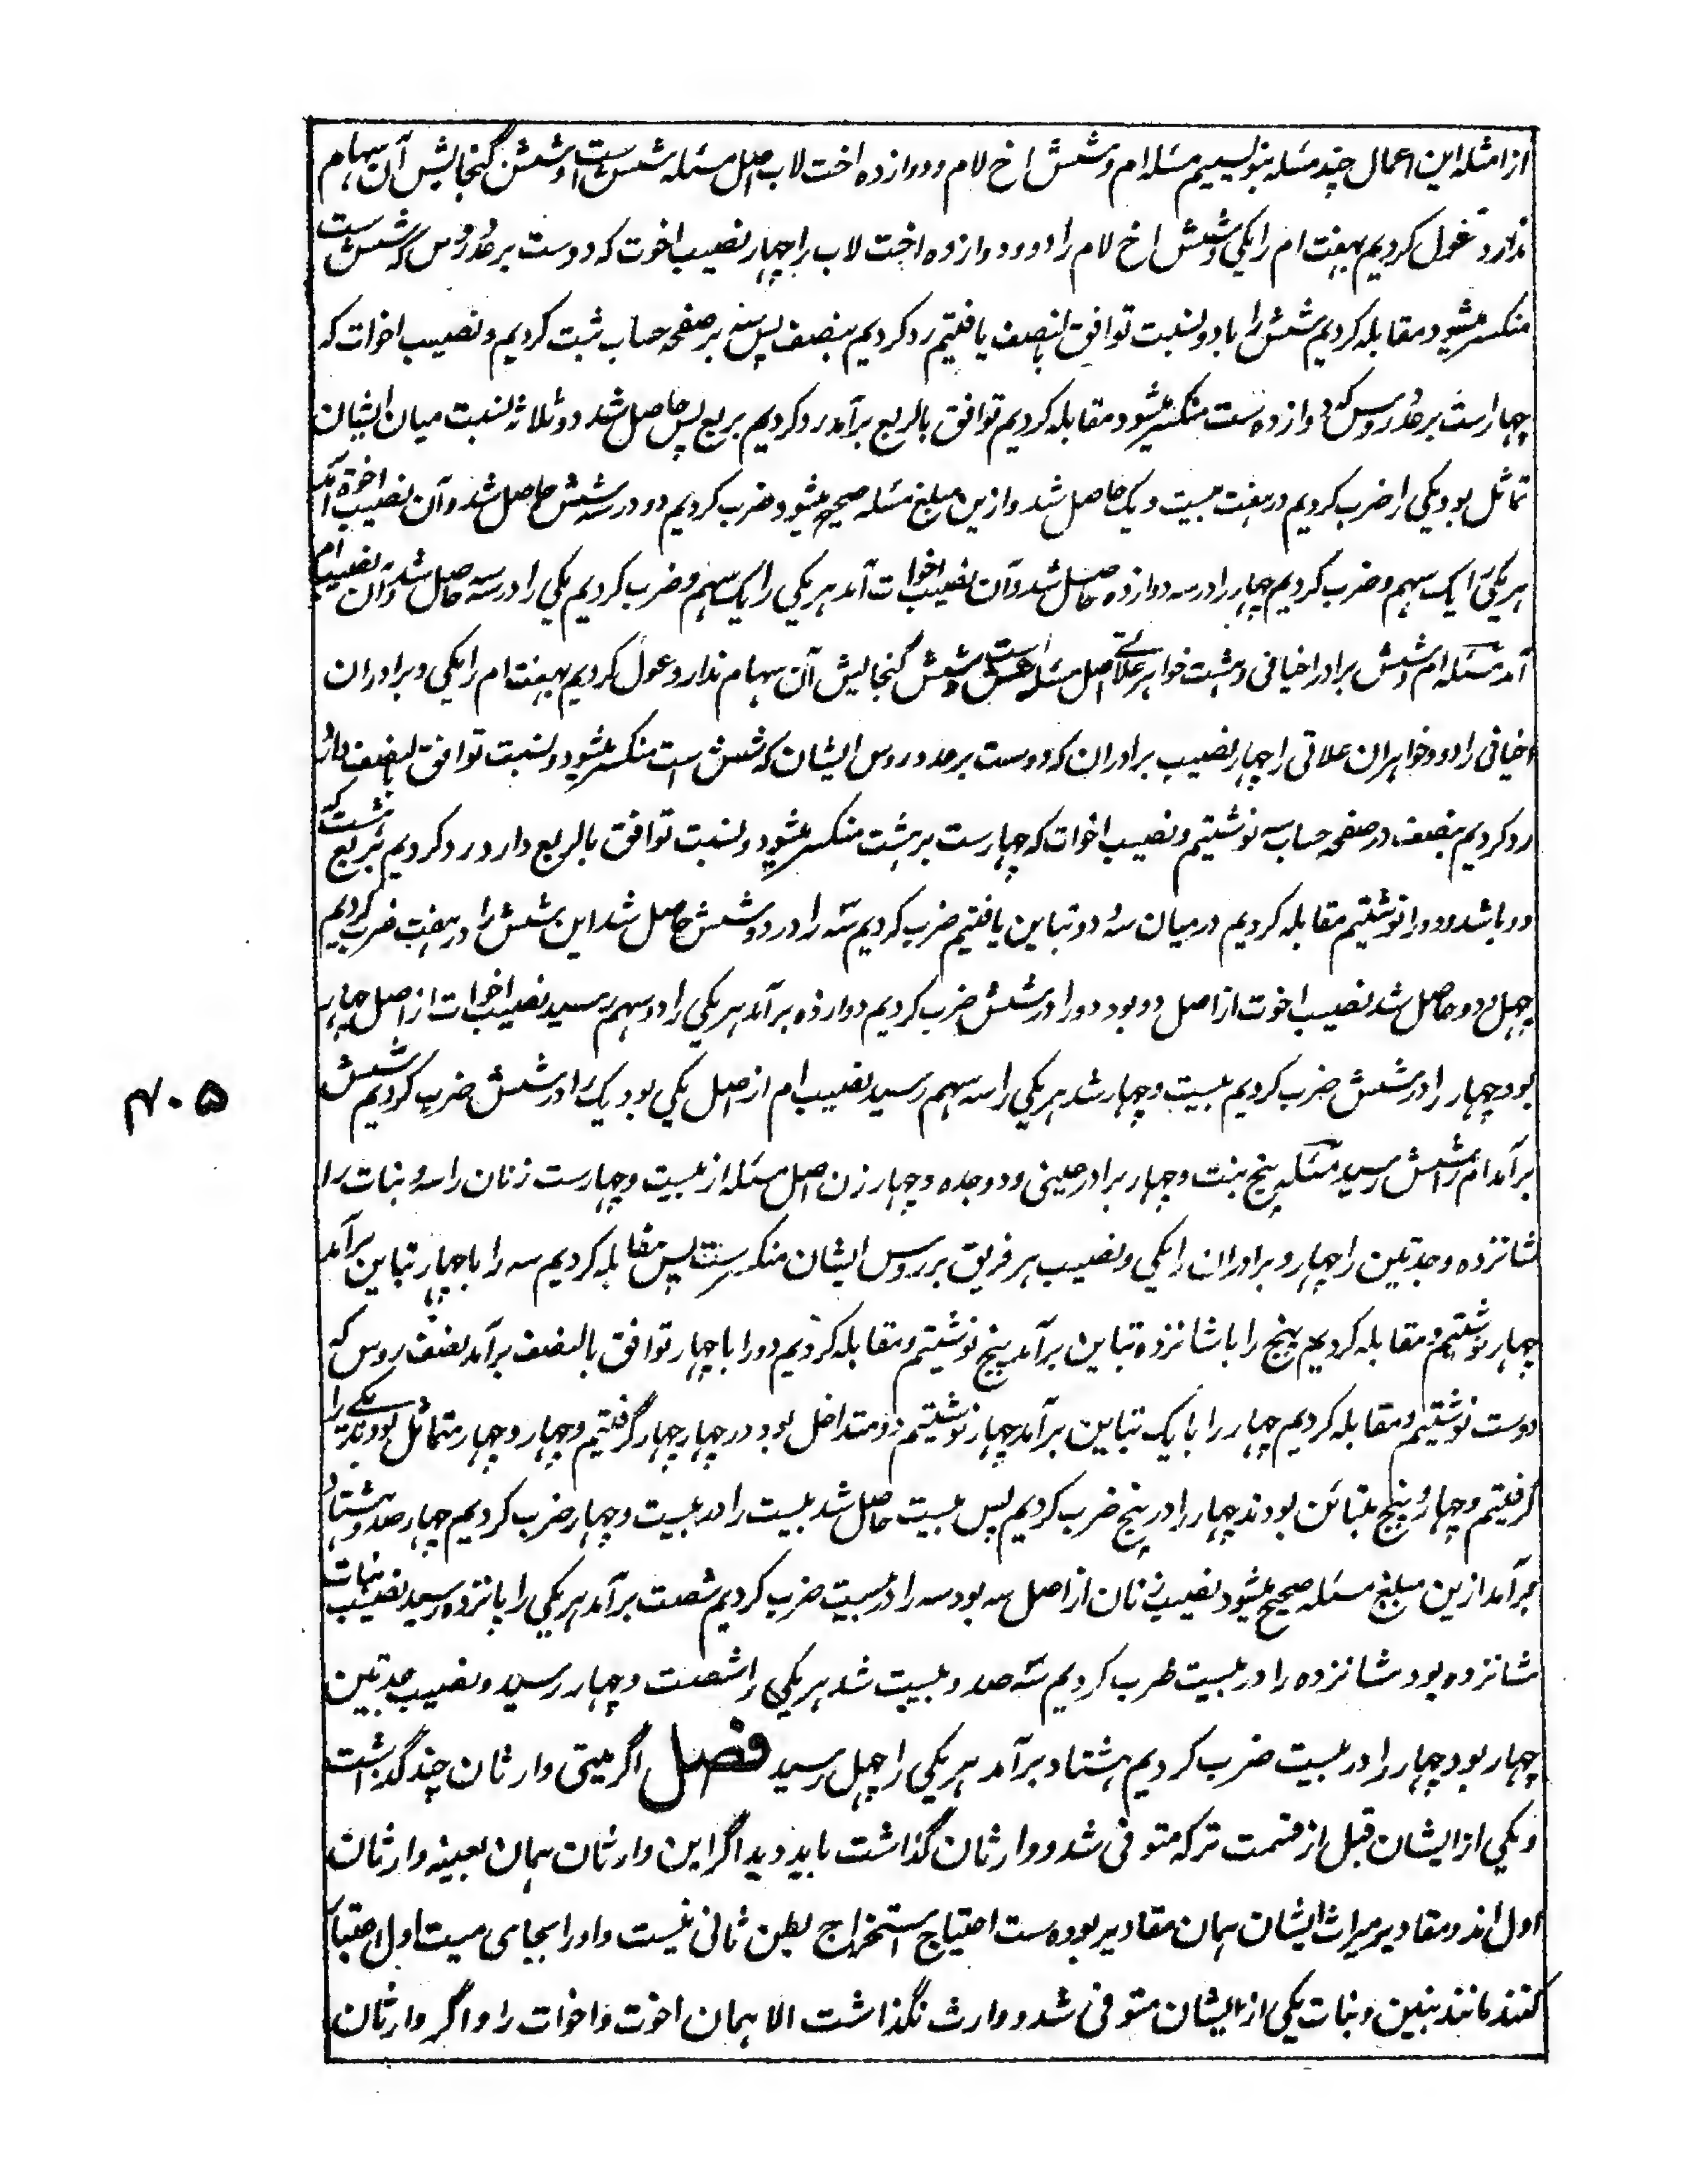 از امثله این اعمال چند مسئله بنویسیم مسئله ام و شش اخ لام و دوازده اخت لاب اصل مسئله شش ست و شش گنجایش آن سهام
ندارد عول کردیم بهفت ام را یکی و شش اخ لام را دو و دوازده اخت لاب را چهار نصیب اخوت که دوست بر عدد روس که شش ست
منکسر میشود مقابله کردیم شش را با دو نسبت توافق بنصف یافتیم رد کردیم بنصف پس سه بر صفحه حساب ثبت کردیم و نصیب اخوات که
چهارست بر عدد روس که دوازده ست منکسر میشود مقابله کردیم توافق بالربع برآمد رد کردیم بربع پس حاصل شد دو ثلاثه نسبت میان ایشان
تماثل بود یکی را ضرب کردیم در هفت بیست و یک حاصل شد و ازین مبلغ مسئله صحیح میشود ضرب کردیم دو در سه شش حاصل شد و آن نصیب اخوة آمد
هر یکی را یک سهم و ضرب کردیم چهار را در سه دوازده حاصل شد و آن نصیب اخوات آمد هر یکی را یک سهم و ضرب کردیم یکی را در سه سه حاصل شد و آن نصیب ام
آمد مسئله ام و شش برادر اخیافی و هشت خواهر علاتی اصل مسئله شش است و شش گنجایش آن سهام ندارد عول کردیم بهفت ام را یکی و برادران
اخیافی را دو و خواهران علاتی را چهار نصیب برادران که دوست بر عدد روس ایشان که شش است منکسر میشود و نسبت توافق بالنصف دارد
رد کردیم بنصف در صفحه حساب سه نوشتیم و نصیب اخوات که چهارست بر هشت منکسر میشود و نسبت توافق بالربع دارد رد کردیم بربع هشت که
دو باشد و دو را نوشتیم مقابله کردیم درمیان سه و دو تباین یافتیم ضرب کردیم سه را در دو شش حاصل شد این شش را در هفت ضرب کردیم
چهل و دو حاصل شد نصیب اخوت از اصل دو بود دو را در شش ضرب کردیم دوازده برآمد هر یکی را دو سهم رسید نصیب اخوات از اصل چهار
بود چهار را در شش ضرب کردیم بیست و چهار شد هر یکی را سه سهم رسید نصیب ام از اصل یکی بود یک را در شش ضرب کردیم شش
برآمد ام را شش رسید مسئله پنج بنت و چهار برادر عینی و دو جده و چهار زن اصل مسئله از بیست و چهارست زنان را سه و بنات را
شانزده و جدتین را چهار و برادران را یکی و نصیب هر فریق بر روس ایشان منکسرست پس مقابله کردیم سه را با چهار تباین برآمد
چهار نوشتیم و مقابله کردیم پنج را با شانزده تباین برآمد پنج نوشتیم و مقابله کردیم دو را با چهار توافق بالنصف برآمد نصف روس که
دوست نوشتیم و مقابله کردیم چهار را با یک تباین برآمد چهار نوشتیم دو متداخل بود در چهار چهار گرفتیم و چهار و چهار متماثل بودند یکی را
گرفتیم و چهار و پنج متبائن بودند چهار را در پنج ضرب کردیم پس بیست حاصل شد بیست را در بیست و چهار ضرب کردیم چهار صد و هشتاد
برآمد ازین مبلغ مسئله صحیح میشود نصیب زنان از اصل سه بود سه را در بیست ضرب کردیم شصت برآمد هر یکی را پانزده رسید نصیب بنات
شانزده بود شانزده را در بیست ضرب کردیم سه صد و بیست شد هر یکی را شصت و چهار رسید و نصیب جدتین
چهار بود چهار را در بیست ضرب کردیم هشتاد برآمد هر یکی را چهل رسید فصل اگر میتی وارثان چند گذاشت
و یکی از ایشان قبل از قسمت ترکه متوفی شد و وارثان گذاشت باید دید اگر این وارثان همان بعینه وارثان
اول اند و مقادیر میراث ایشان همان مقادیر بوده ست احتیاج استخراج بطن ثانی نیست و او را بجای میت اول اعتبار
کنند مانند بنین و بنات یکی از ایشان متوفی شد و وارث نگذاشت الا همان اخوت و اخوات را و اگر وارثان
۴۰۵